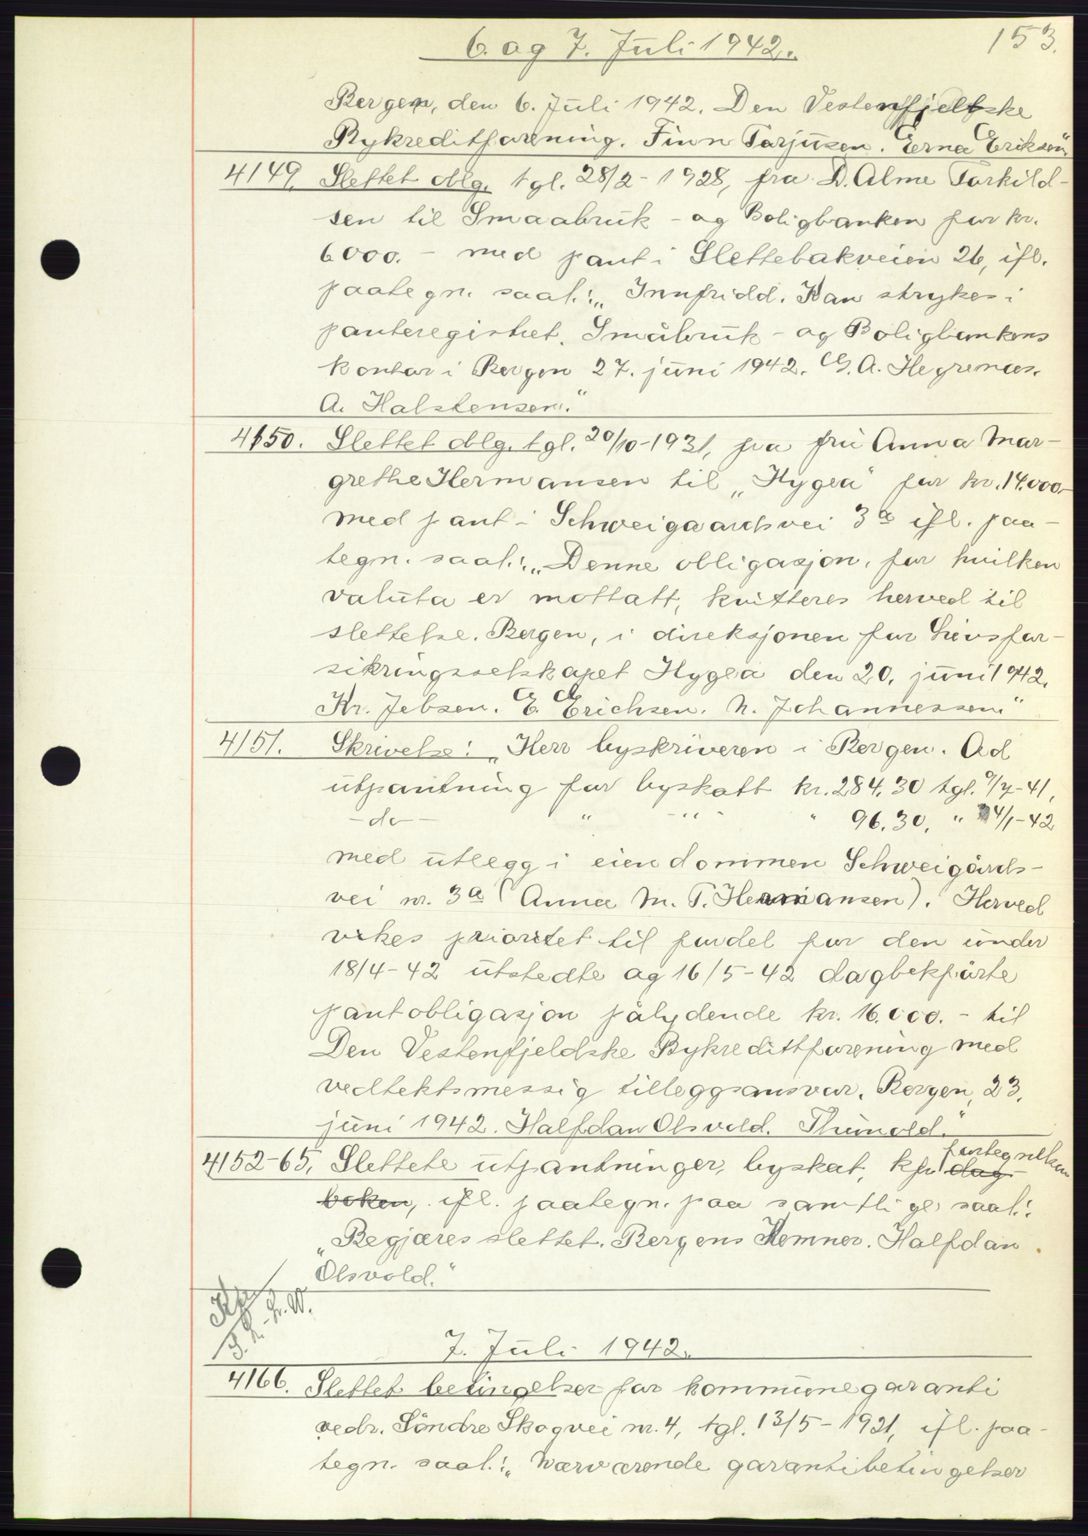 6. og 7. Juli 1942.
153.
Bergen, den 6. Juli 1942. Den Vestenfjeldske
Bykreditforening. Finn Tarjusen. Erna Eriksen"
4149. Slettet oblg. tgl. 28/2-1928, fra D. Alme Torkild-
sen til Smaabruk- og Boligbanken for kr.
6000.- med pant i Slettebakveien 26, ifl.
paategn. saal.: „Innfridd. Kan strykes i
panteregistret. Småbruk- og Boligbankens
kontor i Bergen 27. juni 1942. G. A. Hegrenæs.
A. Halstensen."
4150. Slettet oblg. tgl. 20/10-1931, fra fru Anna Mar-
grethe Hermansen til „Hygea" for kr. 14.000.-
med pant i Schweigaardsvei 3a ifl. paa-
tegn. saal.: „Denne obligasjon, for hvilken
valuta er mottatt, kvitteres herved til
slettelse. Bergen, i direksjonen for Livsfor-
sikringsselskapet Hygea den 20. juni 1942.
Kr. Jebsen. E. Erichsen. N. Johannessen"
4151. Skrivelse: „Herr byskriveren i Bergen. Ad
utpantning for byskatt kr. 284.30 tgl. 9/7-41,
-do- " -"- " 96.30. " 24/1-42
med utlegg i eiendommen Schweigårds-
vei nr. 3a (Anna M. T. Hermansen). Herved
vikes prioritet til fordel for den under
18/4-42 utstedte og 16/5-42 dagbokførte
pantobligasjon pålydende kr. 16.000.- til
Den Vestenfjeldske Bykredittforening med
vedtektsmessig tilleggsansvar. Bergen, 23.
juni 1942. Halfdan Olsvold. Thunold."
4152-65. Slettete utpantninger, byskat, kfr. fortegnelsen dag-
boken, ifl. paategn. paa samtlige saal.:
„Begjæres slettet. Bergens Kemner. Halfdan
Olsvold."
7. Juli 1942.
4166. Slettet betingelser for kommunegaranti
vedr. Söndre Skogvei nr. 4, tgl. 13/5-1921, ifl. paa-
tegn. saal.: „Nærværende garantibetingelser